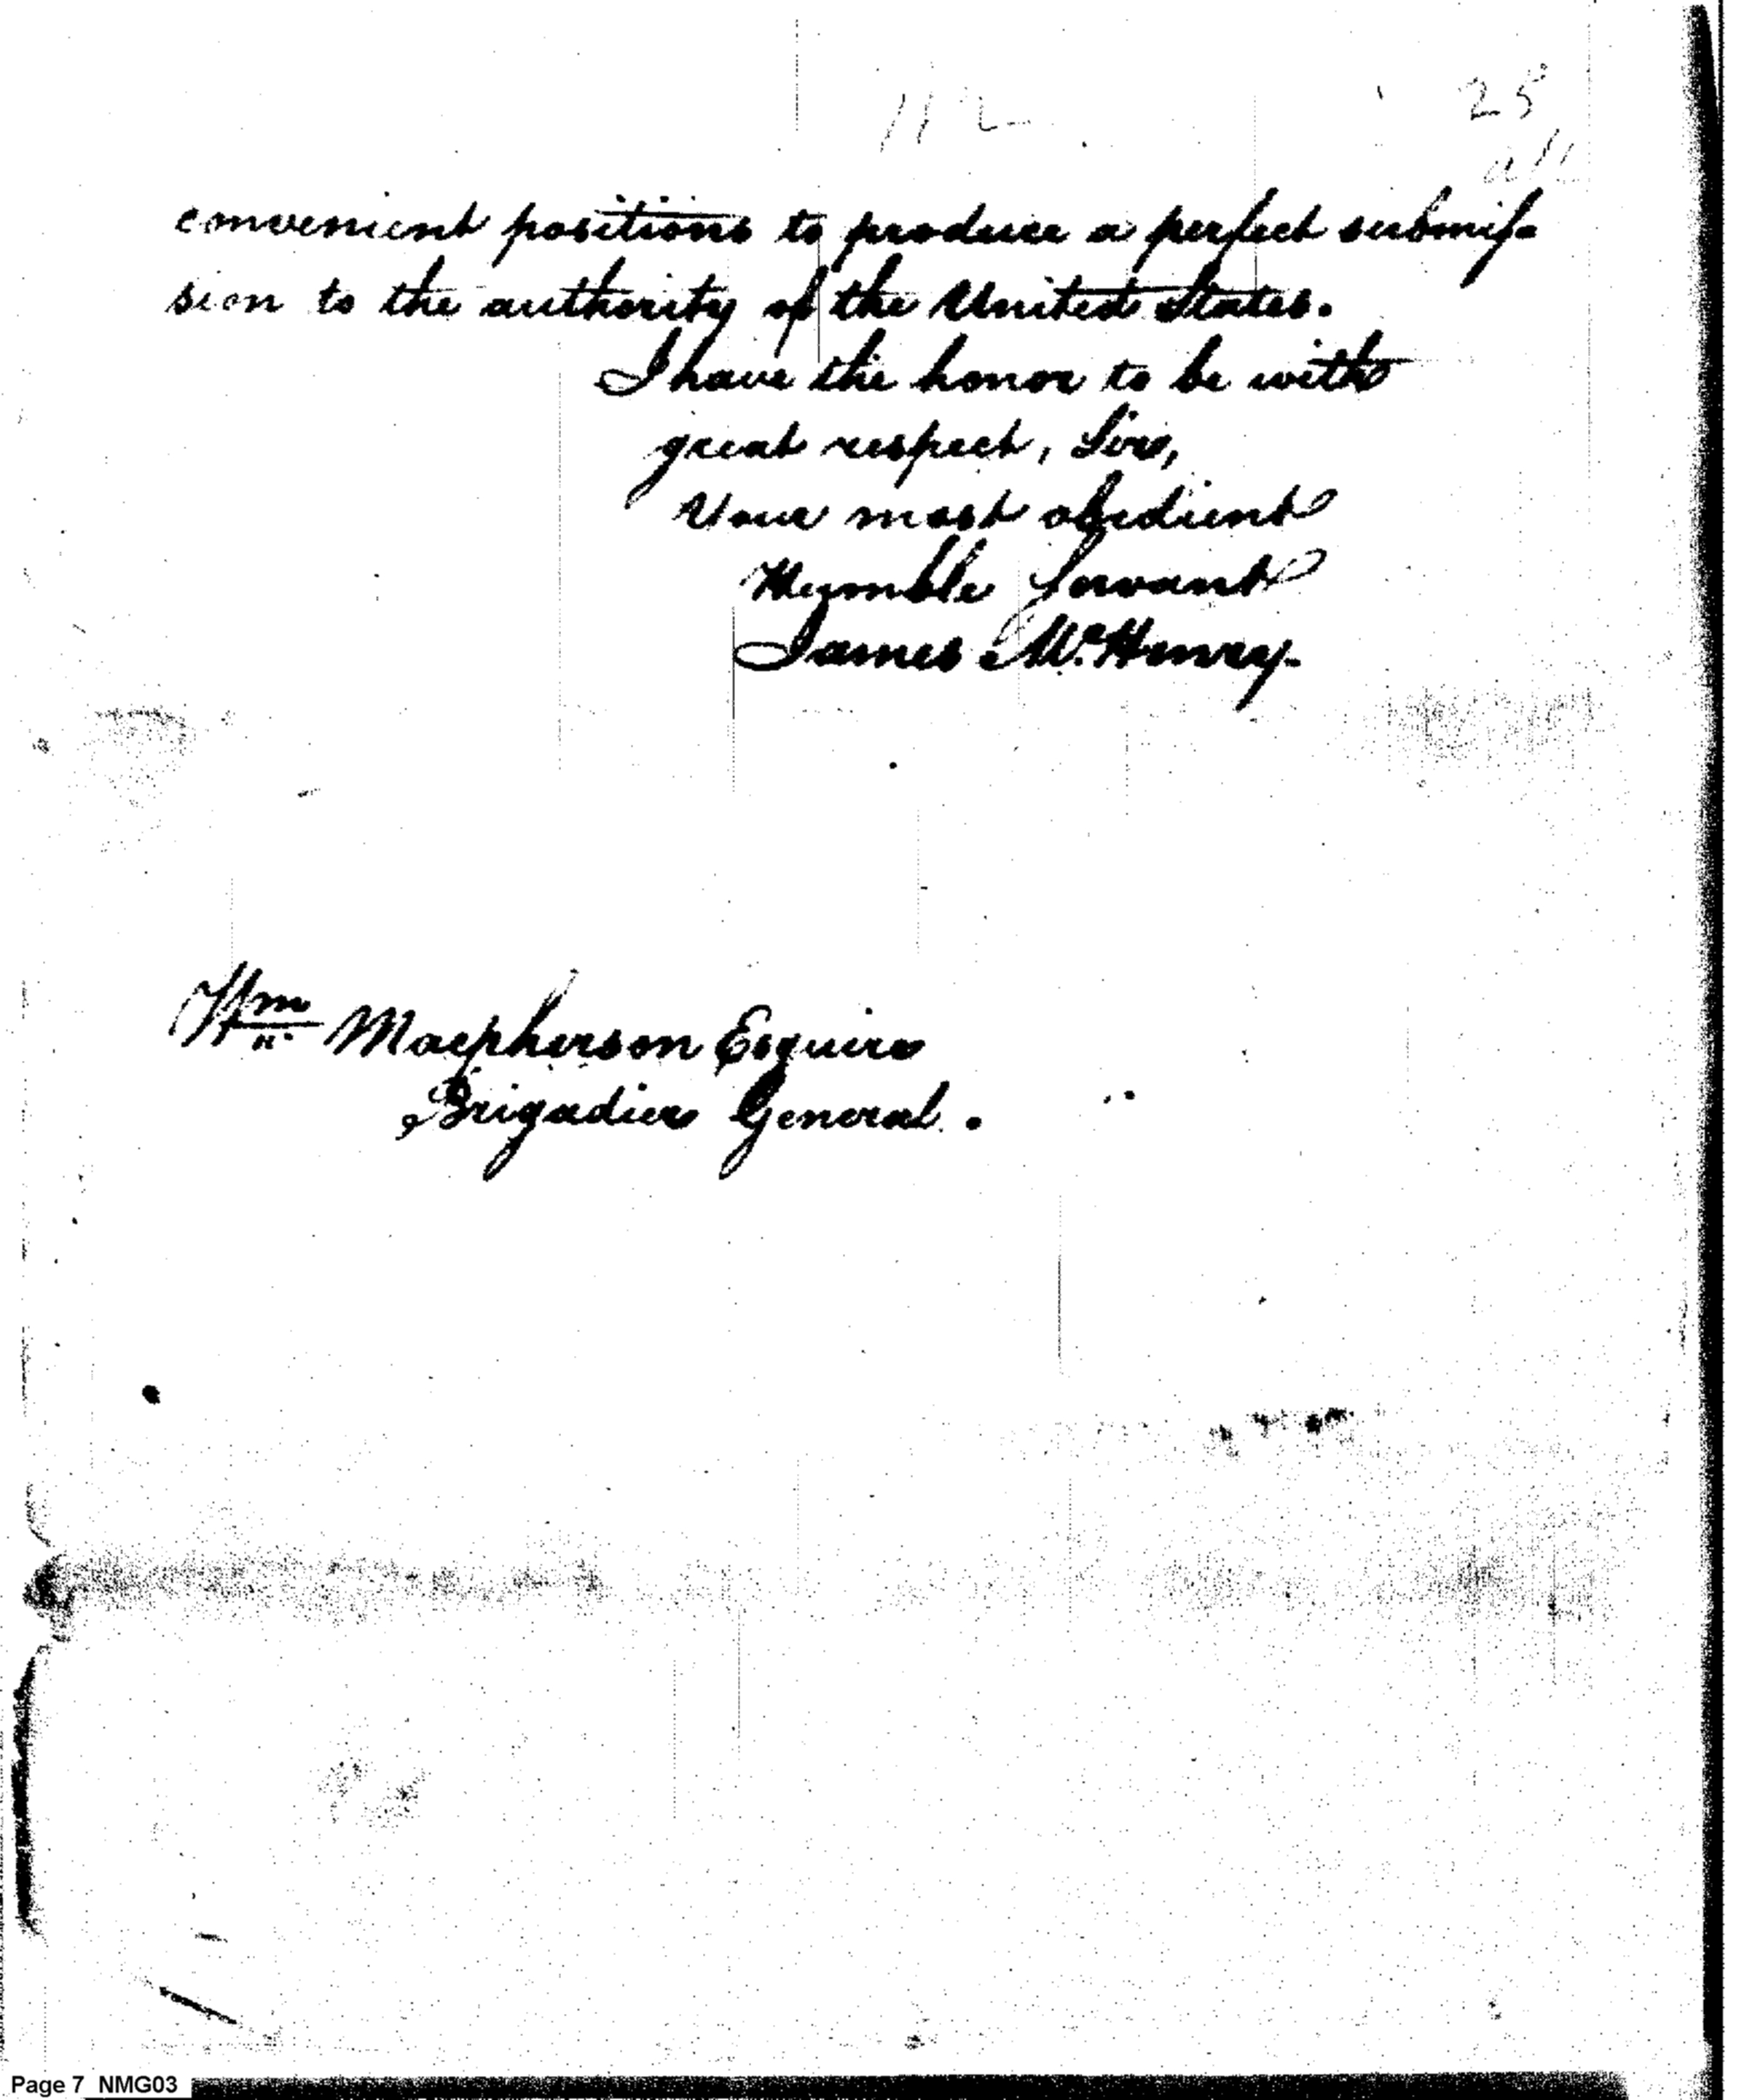 112
25
convenient positions to produce a perfect submis-
sion to the authority of the United States.
I have the honor to be with
great respect, Sir,
Your most obedient
Humble Servant
James McHenry.
Wm Macpherson Esquire
Brigadier General.
Page 7 NMG03